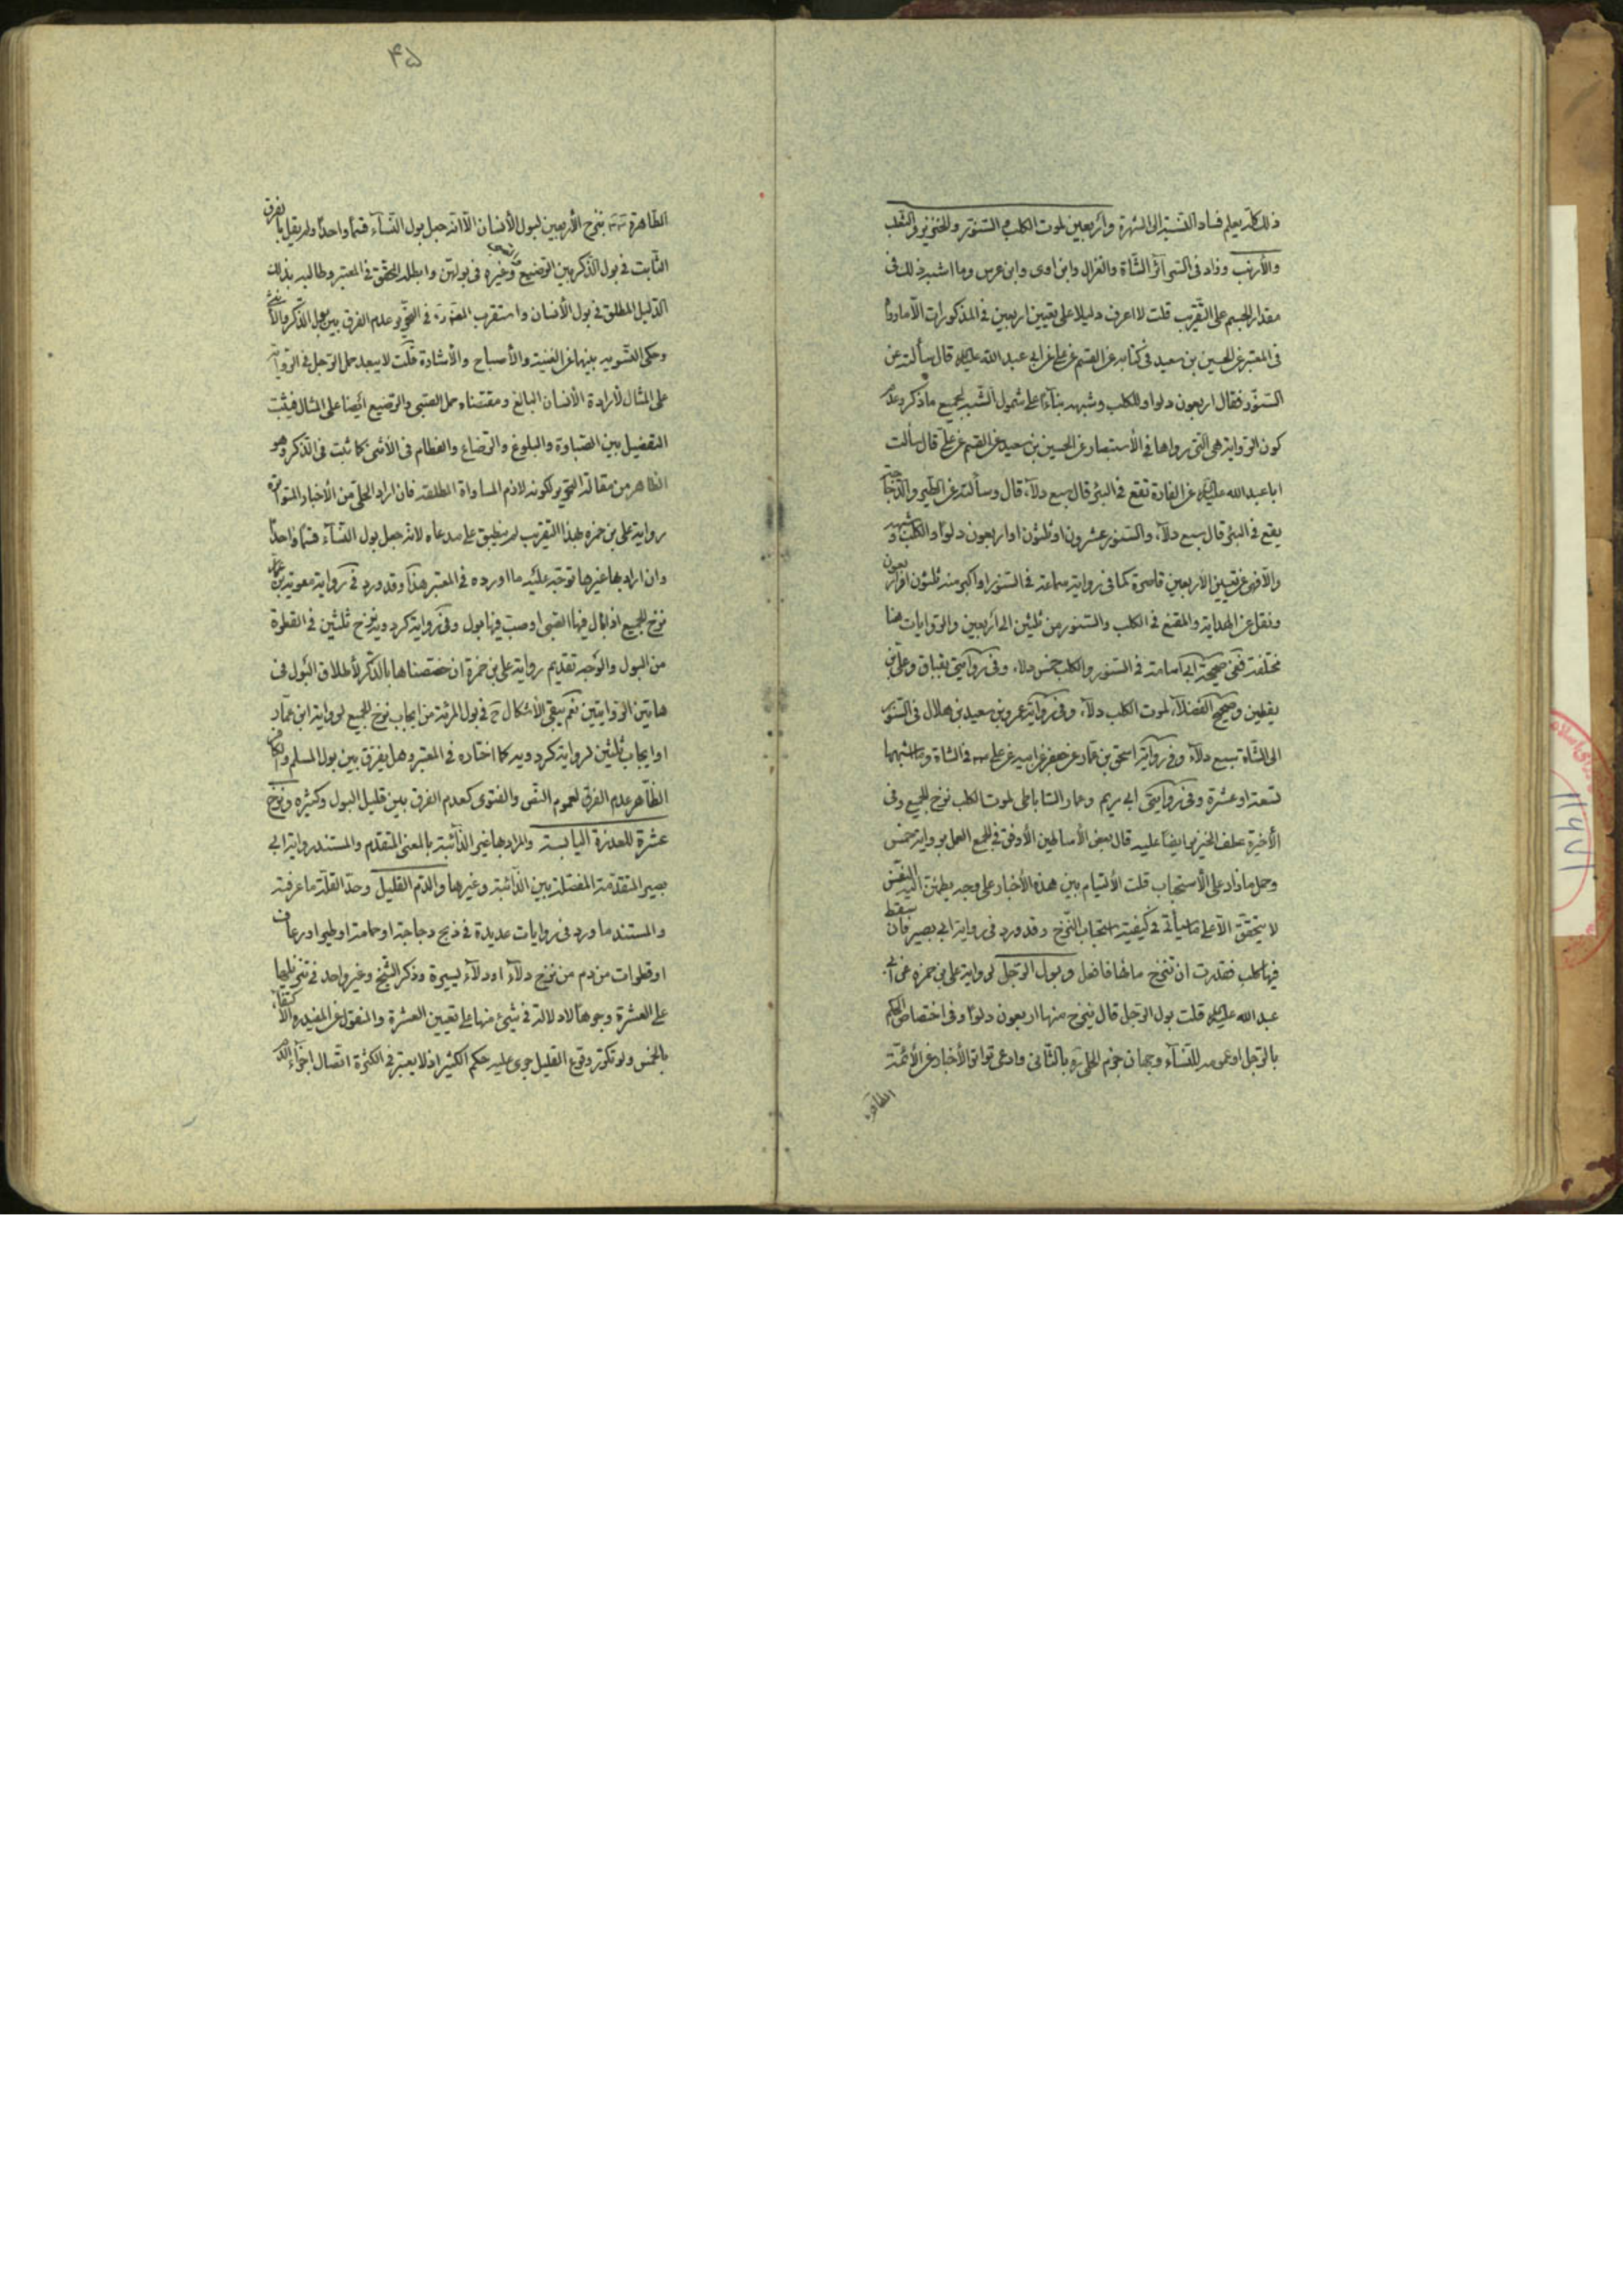 ذلك كله يعلم فساد النسبة الى الشهرة وأربعين لموت الكلب والسنور والخنزير والثعلب
والأرنب وزاد في السرائر الشاة والغزال وابن اوى وابن عرس وما اشبه ذلك في
مقدار الجسم على التقريب قلت لا اعرف دليلا على تعيين اربعين في المذكورات الا ما رواه
في المعتبر عن الحسين بن سعيد في كتابه عن القسم عن علي عن ابي عبد الله عليه السلام قال سألته عن
السنور فقال اربعون دلوا وللكلب وشبهه بناءا على شمول الشبه لجميع ما ذكر وعدم
كون الرواية هي التي رواها في الأستبصار عن الحسين بن سعيد عن القسم عن علي قال سألت
ابا عبد الله عليه السلام عن الفارة تقع في البئر قال سبع دلاء قال وسألته عن الطير والدجاجة
يقع في البئر قال سبع دلاء والسنور عشرون او ثلثون او اربعون دلوا والكلب وشبهه
والا فهي عن تعيين الأربعين قاصرة كما في رواية سماعة في السنور او اكبر منه ثلثون او اربعون
ونقل عن الهداية والمقنع في الكلب والسنور من ثلثين الى أربعين والروايات هنا
مختلفة ففي صحيحة ابي اسامة في السنور والكلب خمس دلاء وفي روايتي بقباق وعلي بن
يقطين وصحيح الفضلاء لموت الكلب دلاء وفي رواية عمرو بن سعيد بن هلال في السنور
الى الشاة سبع دلاء وفي رواية اسحق بن عمار عن جعفر عن ابيه عن علي في الشاة وما اشبهها
تسعة او عشرة وفي روايتي ابي مريم وعمار الساباطي لموت الكلب نزح الجميع وفي
الأخيرة عطف الخنزير ايضا عليه قال بعض الأساطين الأوفق في الجمع العمل برواية خمس
وحمل ما زاد على الأستحباب قلت الألتيام بين هذه الأخبار على وجه يطمئن اليه النفس
لا يتحقق الا على ما سيأتي في كيفية استحباب النزح وقد ورد في رواية ابي بصير فان سقط
فيها كلب فقدرت ان تنزح ماءها فافعل وبول الرجل لرواية علي بن حمزه عن ابي
عبد الله عليه السلام قلت بول الرجل قال ينزح منها اربعون دلوا وفي اختصاص الحكم
بالرجل او عمومه للنساء وجهان جزم الحلي ره بالثاني وادعى تواتر الأخبار عن الأئمة
الطاهرة
۴۵
الطاهرة بنزح الأربعين لبول الأنسان الا انه جعل بول النساء قسما واحدا ولم يقل بالفرق
الثابت في بول الذكر بين الرضيع وغيره في بولهن وابطله المحقق في المعتبر وطالبه بذلك
الدليل المطلق في بول الأنسان واستقرب في التحرير عدم الفرق بين بول الذكر والأنثى
وحكى التسوية بينهما عن الغنية والأصباح والأشارة قلت لا يبعد حمل الرجل في الرواية
على المثال لأرادة الأنسان البالغ ومقتضاه حمل الصبي والرضيع ايضا على المثال فيثبت
التفصيل بين الصباوة والبلوغ والرضاع والفطام في الأنثى كما ثبت في الذكر وهو
الظاهر من مقالة التحرير لكونه لازم المساواة المطلقة فان اراد الحلي من الأخبار المتواترة
رواية علي بن حمزه بهذا التقريب لم ينطبق على مدعاه لانه جعل بول النساء قسما واحدا
وان اراد بها غيرها توجه عليه ما اورده في المعتبر هذا وقد ورد في رواية معوية بن عمار
نزح الجميع اذا بال فيها الصبي او صب فيها بول وفي رواية كردويه نزح ثلثين في القطرة
من البول والوجه تقديم رواية علي بن حمزة ان خصصناها بالذكر لأطلاق البول في
هاتين الروايتين نعم يبقى الأشكال ح في بول المرئة من ايجاب نزح الجميع لرواية ابن عمار
او ايجاب ثلثين لرواية كردويه كما اختاره في المعتبر وهل يفرق بين بول المسلم والكافر
الظاهر عدم الفرق لعموم النص والفتوى كعدم الفرق بين قليل البول وكثيره ونزح
عشرة للعذرة اليابسة والمراد بها غير الذائبة بالمعنى المتقدم والمستند رواية ابي
بصير المتقدمة المفصلة بين الذائبة وغيرها والدم القليل وحد القلة ما عرفته
والمستند ما ورد في روايات عديدة في ذبح دجاجة او حمامة او طير او رعاف
او قطرات من دم من نزح دلاء او دلاء يسيرة وذكر الشيخ وغير واحد في تنزيلها
على العشرة وجوها لا دلالة في شيئ منها على تعيين العشرة والمنقول عن المفيد ره الأكتفاء
بالخمس ولو تكرر وقوع القليل جرى عليه حكم الكثير اذ لا يعتبر في الكثرة اتصال اجزاء الدم